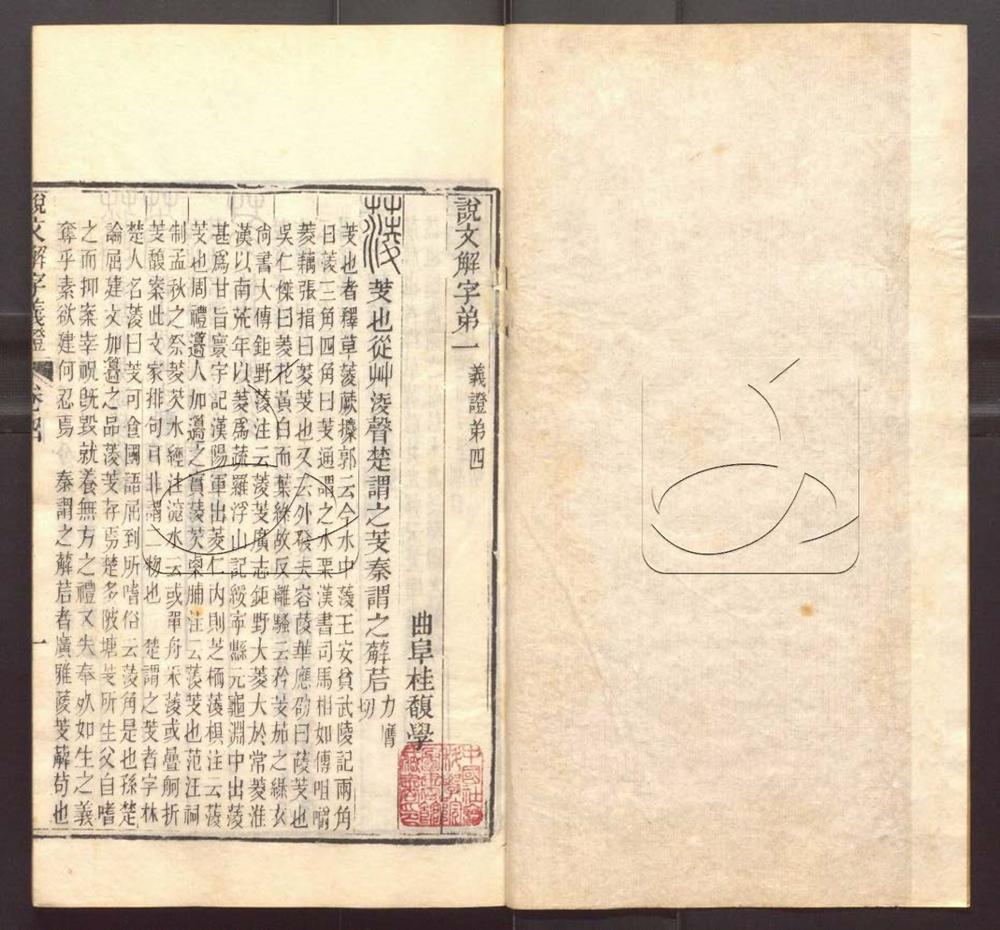 說文解字弟一 義證弟四
曲阜桂馥學
蔆 芰也從艸淩聲楚謂之芰秦謂之薢茩 力膺切
芰也者釋草蔆蕨攗郭云今水中蔆王安貧武陵記兩角
曰蔆三角四角曰芰通謂之水栗漢書司馬相如傳咀嚼
菱藕張揖曰菱芰也又云外發夫容蔆華應劭曰蔆芰也
吳仁傑曰菱花黃白而葉綠故反離騷云矜芰茄之綠衣
尙書大傳鉅野蔆注云蔆芰廣志鉅野大菱大於常菱淮
漢以南荒年以菱爲蔬羅浮山記綏寧縣元龜淵中出蔆
甚爲甘旨寰宇記漢陽軍出菱仁內則芝栭蔆椇注云蔆
芰也周禮籩人加籩之實蔆芡㮚脯注云蔆芰也范汪祠
制孟秋之祭菱芡水經注滱水云或單舟采蔆或疊舸折
芰馥案此文家排句耳非謂二物也 楚謂之芰者字林
楚人名蔆曰芰可食國語屈到所嗜俗云蔆角是也孫楚
論屈建文加籩之品蔆芰存焉楚多陂塘芰所生父自嗜
之而抑案宰祝旣毀就養無方之禮又失奉死如生之義
奪乎素欲建何忍焉 秦謂之薢茩者廣雅蔆芰薢茍也
說文解字義證 卷四 一